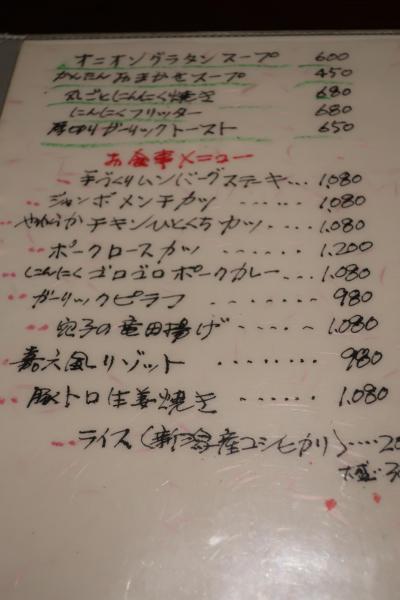 オニオングラタンスープ 600
かんたんおまかせスープ 450
丸ごとにんにく焼き 680
にんにくフリッター 680
厚切りガーリックトースト 650
お食事メニュー
手づくりハンバーグステーキ... 1,080
ジャンボメンチカツ ...... 1,080
やわらかチキンひとくちカツ .... 1,080
ポークロースカツ ....... 1,200
にんにくゴロゴロポークカレー.... 1,080
ガーリックピラフ ....... 980
の竜田揚げ ..... 1,080
嘉六風リゾット ........ 980
豚トロ生姜焼き ...... 1,080
ライス(新潟産コシヒカリ)....20
大盛